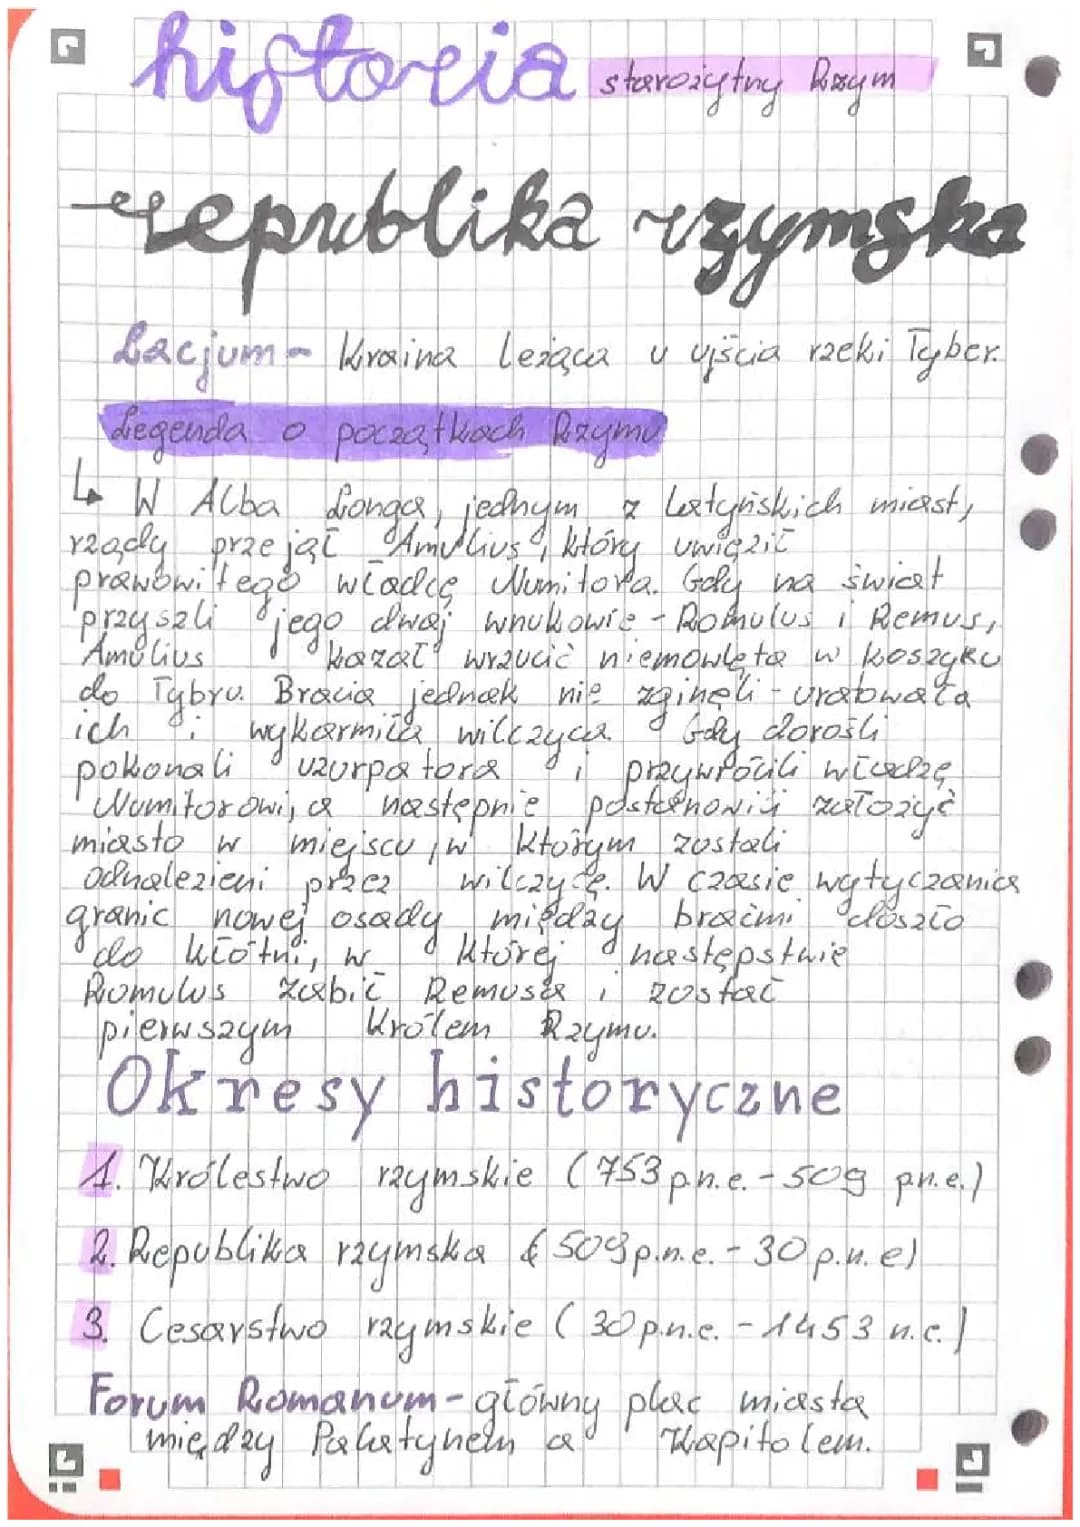 historia starożytny Rzym
republika rzymska
Lacjum - Kraina leżąca u ujścia rzeki Tyber.
Legenda o początkach Rzymu
↳ W Alba Longa, jednym z latyńskich miast,
rządy przejął Amulius, który uwięził
prawowitego władcę Numitora. Gdy na świat
przyszli jego dwaj wnukowie - Romulus i Remus,
Amulius kazał wrzucić niemowlęta w koszyku
do Tybru. Bracia jednak nie zginęli - uratowała
ich i wykarmiła wilczyca. Gdy dorośli
pokonali uzurpatora i przywrócili władzę
Numitorowi, a następnie postanowili założyć
miasto w miejscu, w którym zostali
odnalezieni przez wilczycę. W czasie wytyczania
granic nowej osady między braćmi doszło
do kłótni, w której następstwie
Romulus zabił Remusa i został
pierwszym Królem Rzymu.
Okresy historyczne
1. Królestwo rzymskie (753 p.n.e. - 509 p.n.e.)
2. Republika rzymska (509 p.n.e. - 30 p.n.e)
3. Cesarstwo rzymskie (30 p.n.e. - 1453 n.e.)
Forum Romanum - główny plac miasta
między Palatynem a Kapitolem.